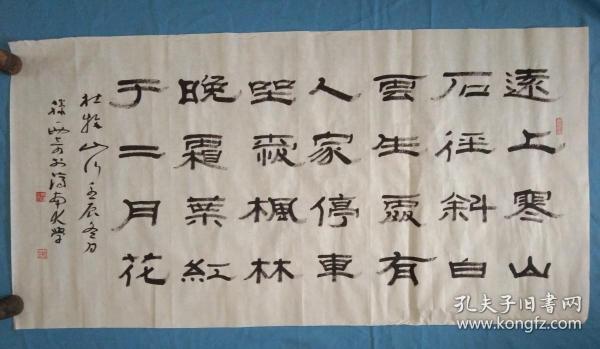 遠上寒山
石徑斜白
雲生處有
人家停車
坐愛楓林
晚霜葉紅
于二月花
杜牧山行壬辰冬月
於濟南大學
孔夫子旧书网
www.kongfz.com